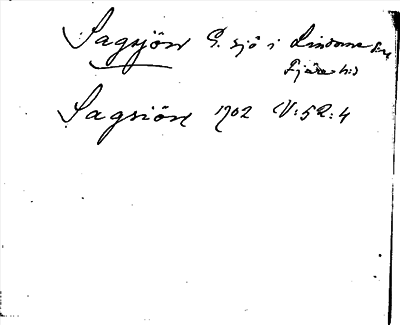 Sagsjön G. sjö i Lindome sn
Fjäre hd
Sagsiön 1702 V:52:4